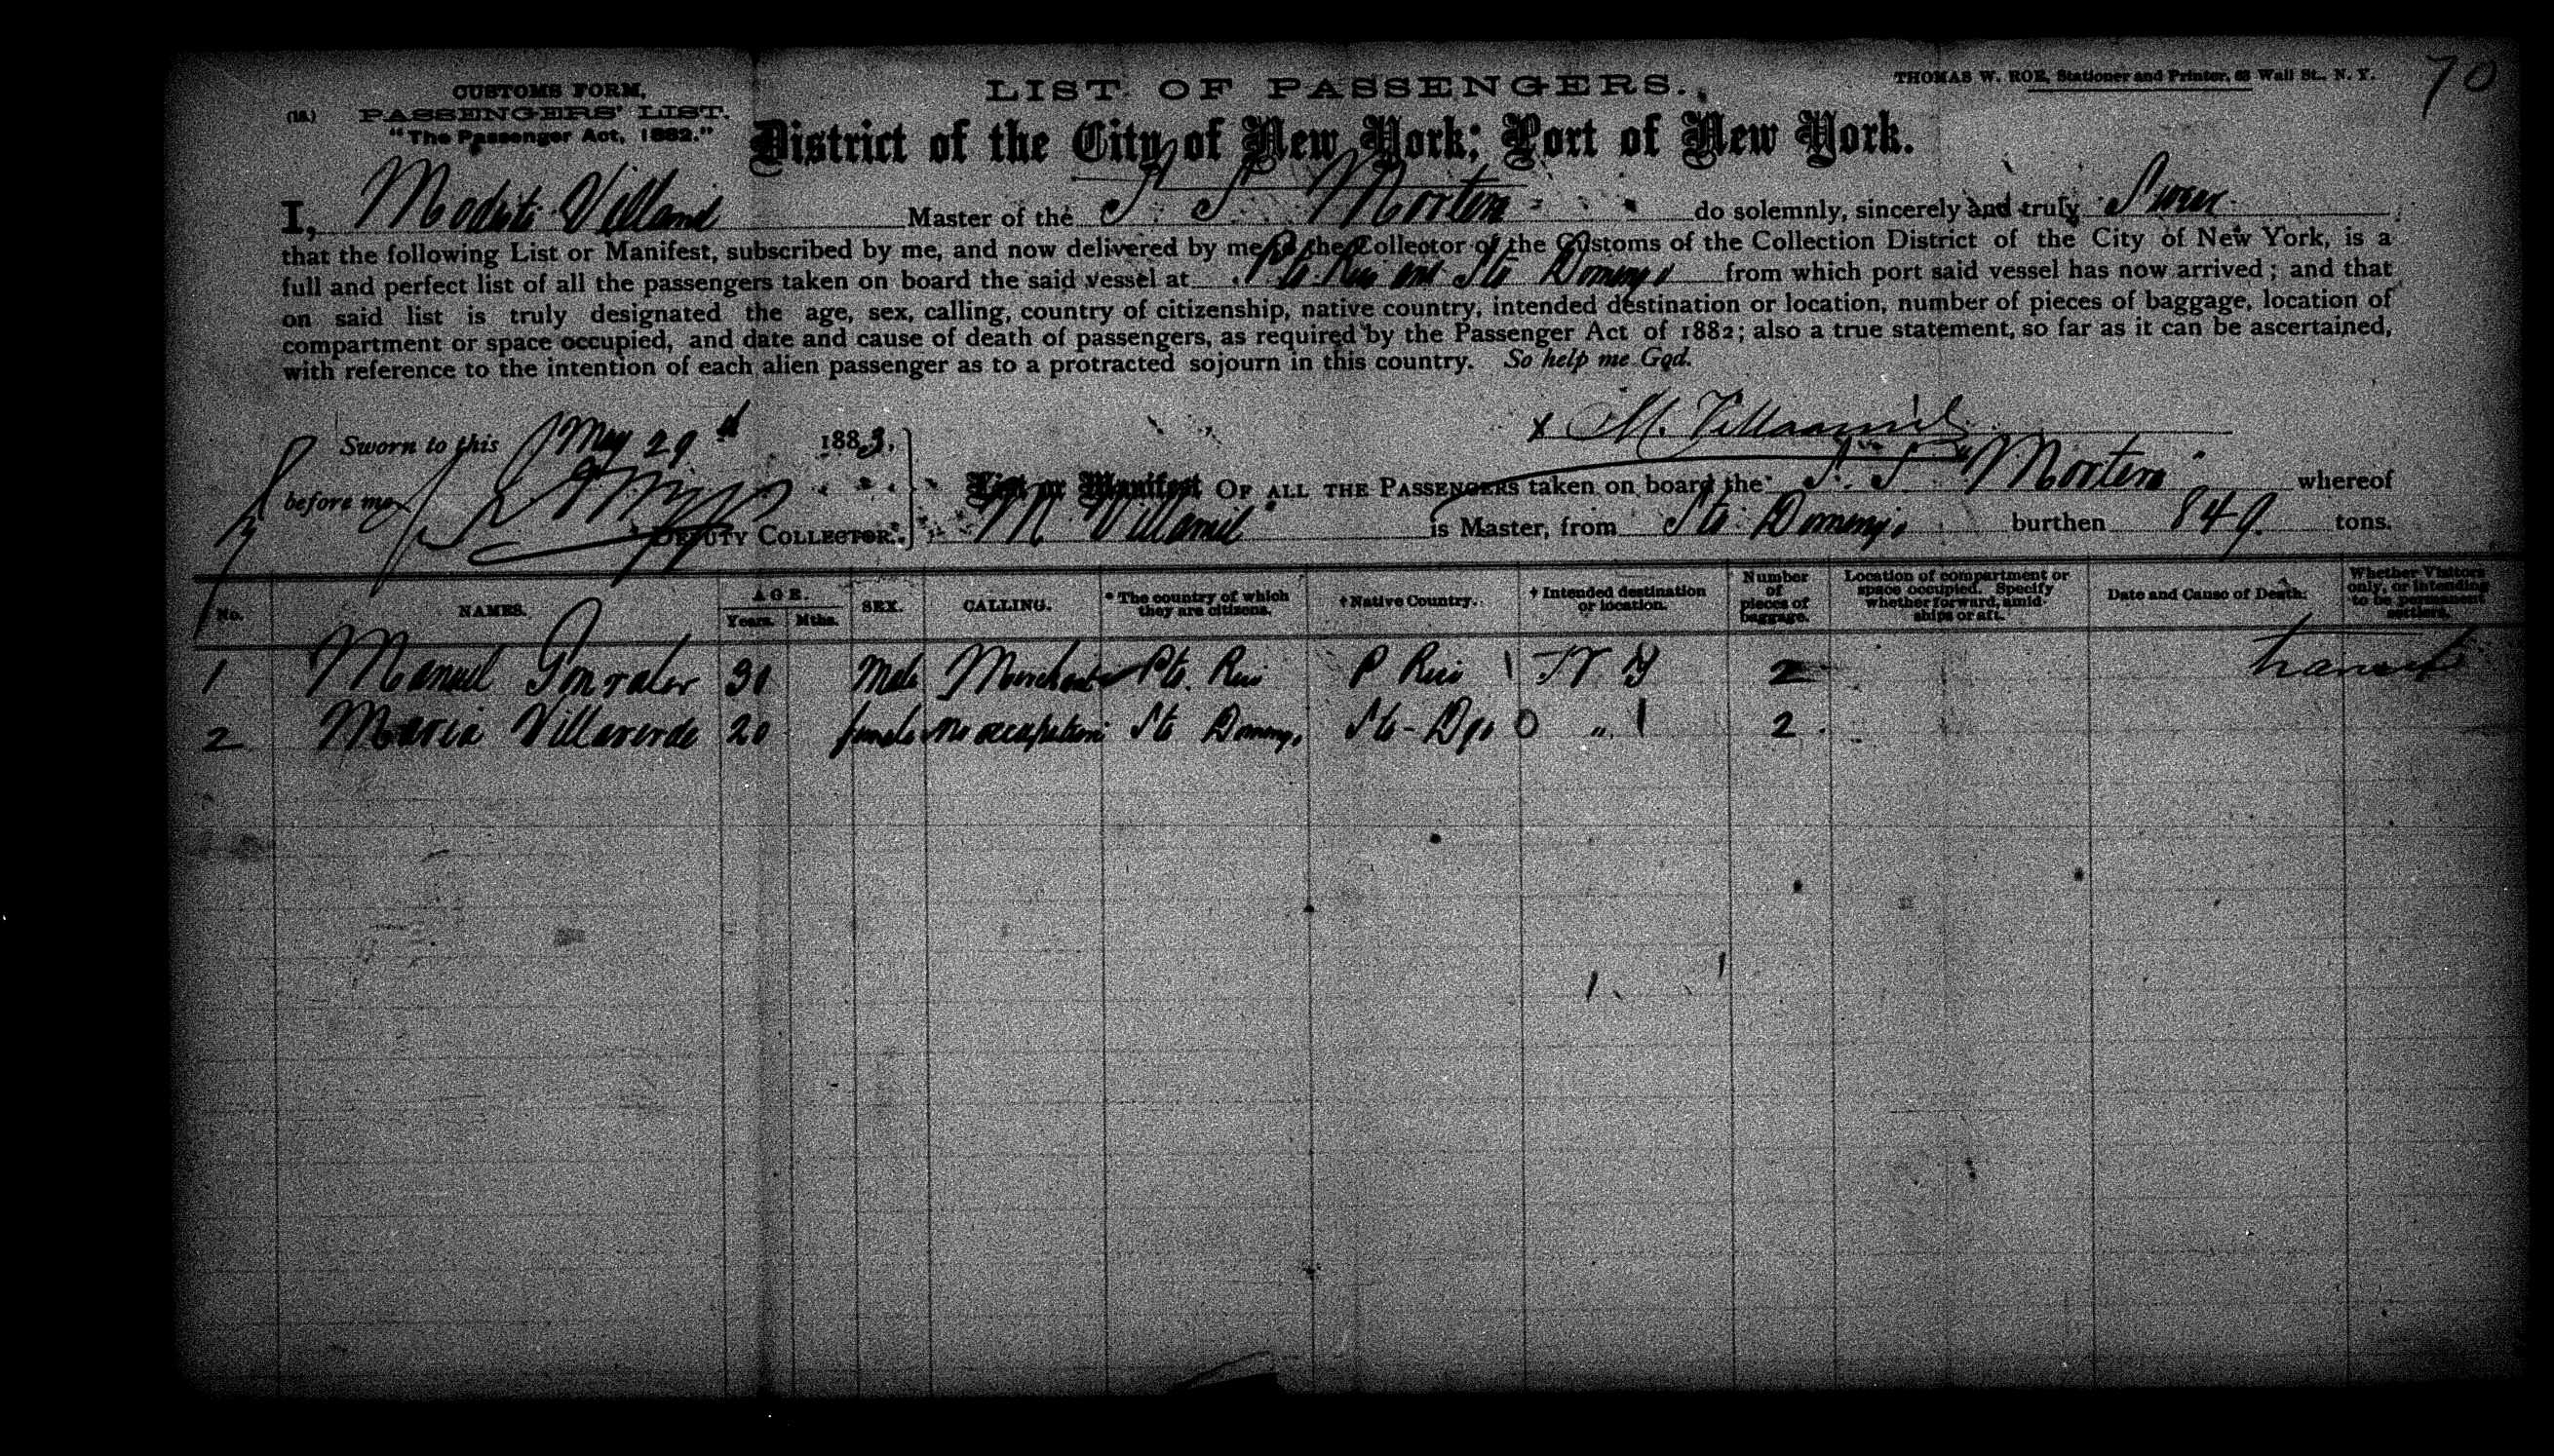 CUSTOMS FORM.
(18.) PASSENGERS' LIST.
"The Passenger Act, 1882."
LIST OF PASSENGERS.
THOMAS W. ROE, Stationer and Printer, 63 Wall St., N. Y.
70
District of the City of New York; Port of New York.
I, Master of the S. S. Mortera do solemnly, sincerely and truly Swear
that the following List or Manifest, subscribed by me, and now delivered by me to the Collector of the Customs of the Collection District of the City of New York, is a
full and perfect list of all the passengers taken on board the said vessel at Pto. Rico and Sto Domingo from which port said vessel has now arrived; and that
on said list is truly designated the age, sex, calling, country of citizenship, native country, intended destination or location, number of pieces of baggage, location of
compartment or space occupied, and date and cause of death of passengers, as required by the Passenger Act of 1882; also a true statement, so far as it can be ascertained,
with reference to the intention of each alien passenger as to a protracted sojourn in this country. So help me God.
x M. Villaamil
Sworn to this May 29 1883,
before me
DEPUTY COLLECTOR.
List or Manifest OF ALL THE PASSENGERS taken on board the S. S. "Mortera" whereof
M Villamil is Master, from Sto. Domingo burthen 849 tons.
No. NAMES. AGE. Years. Mths. SEX. CALLING. * The country of which they are citizens. † Native Country. † Intended destination or location. Number of pieces of baggage. Location of compartment or space occupied. Specify whether forward, amidships or aft. Date and Cause of Death. Whether Visitors only, or intending to be permanent settlers.
1 Manuel Gonzalez 30 Male Merchant Pto. Rico P Rico N Y 2 transit
2 Maria Villaverde 20 female No occupation Sto Domingo Sto-Dgo 0 " 1 2